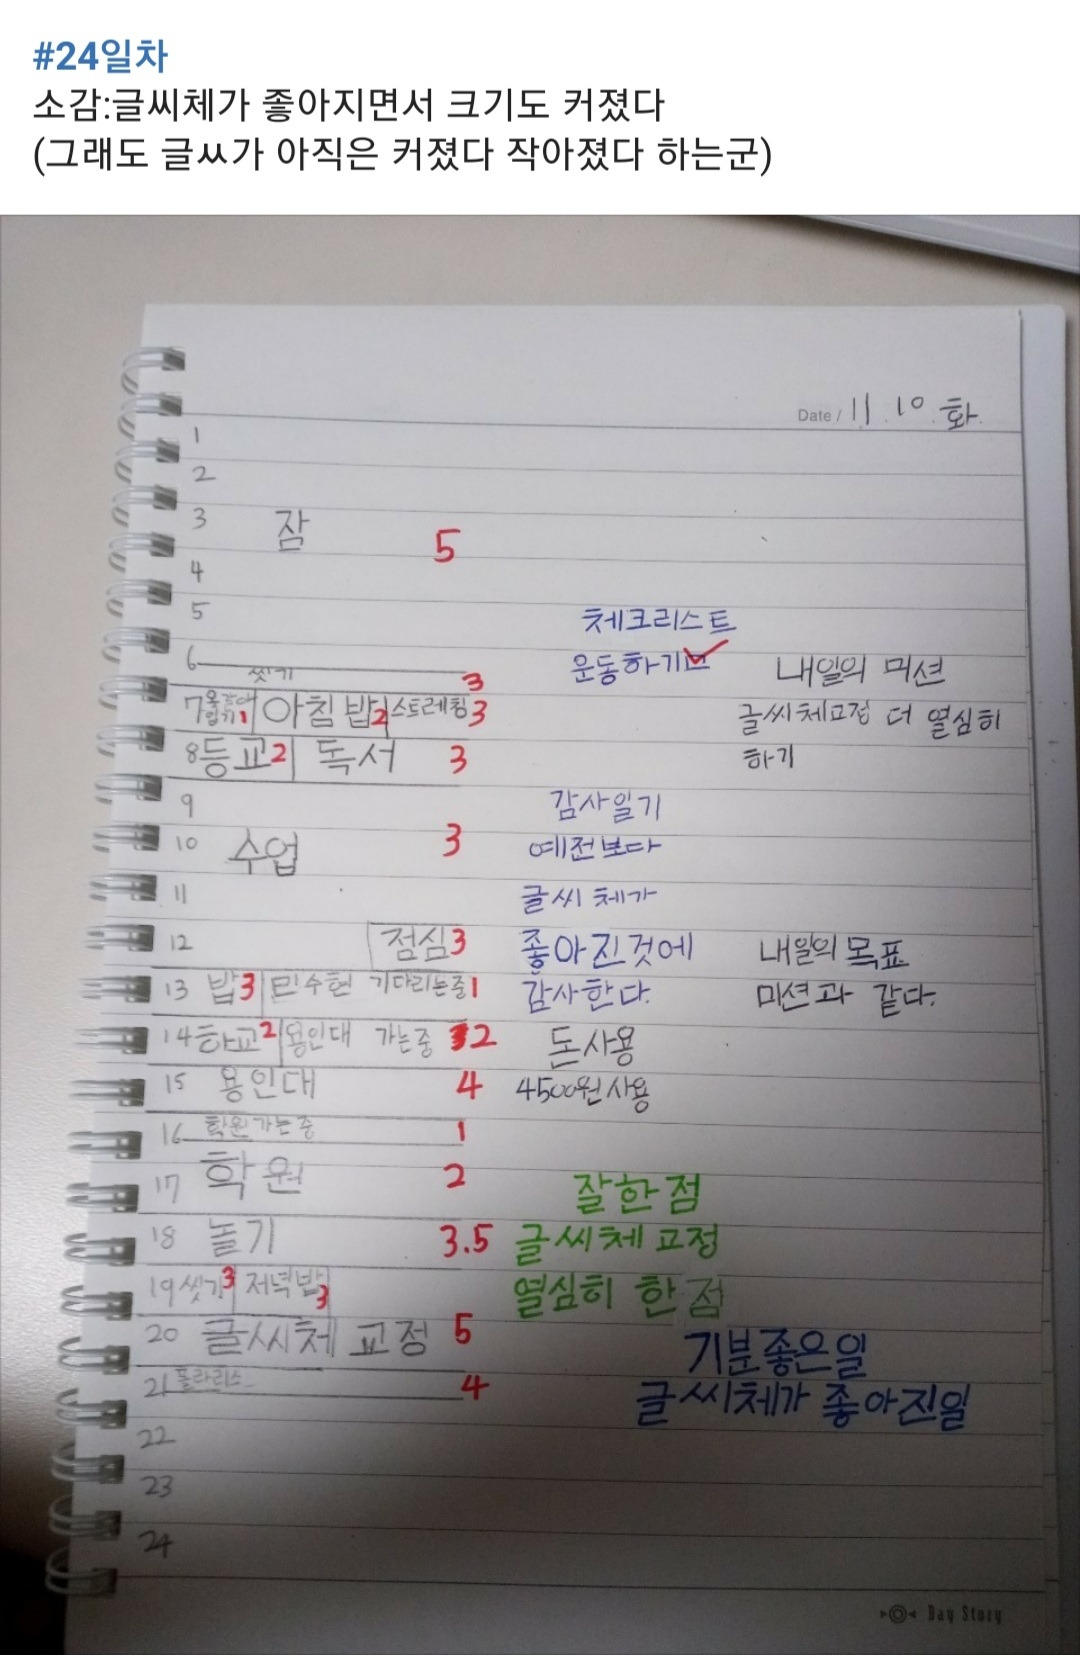 #24일차
소감:글씨체가 좋아지면서 크기도 커졌다
(그래도 글ㅆ가 아직은 커졌다 작아졌다 하는군)
Date / 11. 10. 화.
1
2
3 잠 5
4
5
체크리스트
6 씻기 3
운동하기
내일의 미션
7 1 아침 밥 2 스트레칭 3
글씨체교정 더 열심히
하기
8 등교 2 독서 3
9
감사일기
10 수업 3
예전보다
11
글씨체가
12 점심 3
좋아진것에
내일의 목표
13 밥 3 민수현 기다리는중 1
감사한다.
미션과 같다.
14 하교 2 용인대 가는중 2
돈사용
15 용인대 4
4500원사용
16 학원가는중 1
17 학원 2
잘한점
18 놀기 3.5
글씨체 교정
19 씻기 3 저녁밥 3
열심히 한 점
20 글씨체 교정 5
기분좋은일
21 폴라리스 4
글씨체가 좋아진일
22
23
24
Day Story